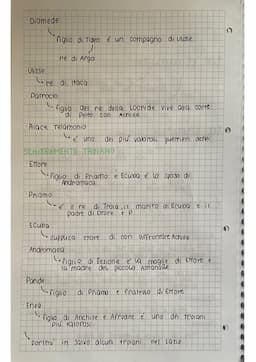 Diomede
figlio di Tideo è un compagno di Ulisse
re di Argo
Ulisse
re di Itaca
Patroclo
figlio del re della Locride vive alla corte
di Peleo con Achille
Aiace Telamonio
è uno dei più valorosi guerrieri achei
SCHIERAMENTO TROIANO
Ettore
figlio di Priamo e Ecuba è lo sposo di
Andromaca
Priamo
è il re di Troia, il marito di Ecuba e il
padre di Ettore e P
Ecuba
supplica Ettore di non affrontare Achille
Andromaca
figlia di Eezione è la moglie di Ettore e
la madre del piccolo Astianatte
Paride
figlio di Priamo e fratello di Ettore
Enea
figlio di Anchise e Afrodite è uno dei troiani
più valorosi
porterà in salvo alcuni troiani nel Lazio